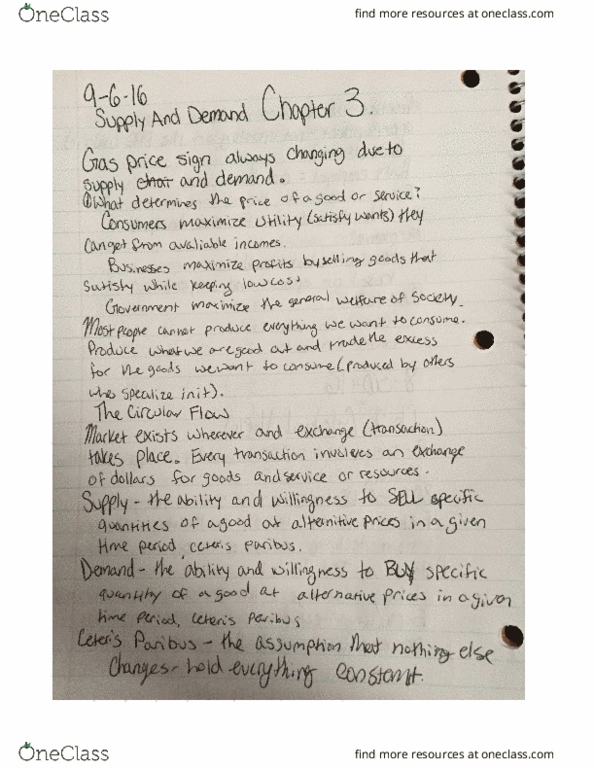 OneClass
find more resources at oneclass.com
9-6-16
Supply And Demand Chapter 3.
Gas price sign always changing due to
supply chat and demand.
①What determines the price of a good or service?
Consumers maximize utility (satisfy wants) they
can get from avaliable incomes.
Businesses maximize profits by selling goods that
satisfy while keeping low cost
Government maximize the general welfare of society.
Most people cannot produce everything we want to consume.
Produce what we are good at and trade the excess
for the goods we want to consume (produced by others
who specalize in it).
The Circular Flow
Market exists wherever and exchange (transaction)
takes place. Every transaction involves an exchange
of dollars for goods and service or resources.
Supply - the ability and willingness to SELL specific
quantities of a good at alternitive prices in a given
time period, ceteris paribus.
Demand - the ability and willingness to BUY specific
quantity of a good at alternative prices in a given
time period, ceteris paribus
Ceteris Paribus - the assumption that nothing else
changes - hold everything constant.
OneClass
find more resources at oneclass.com